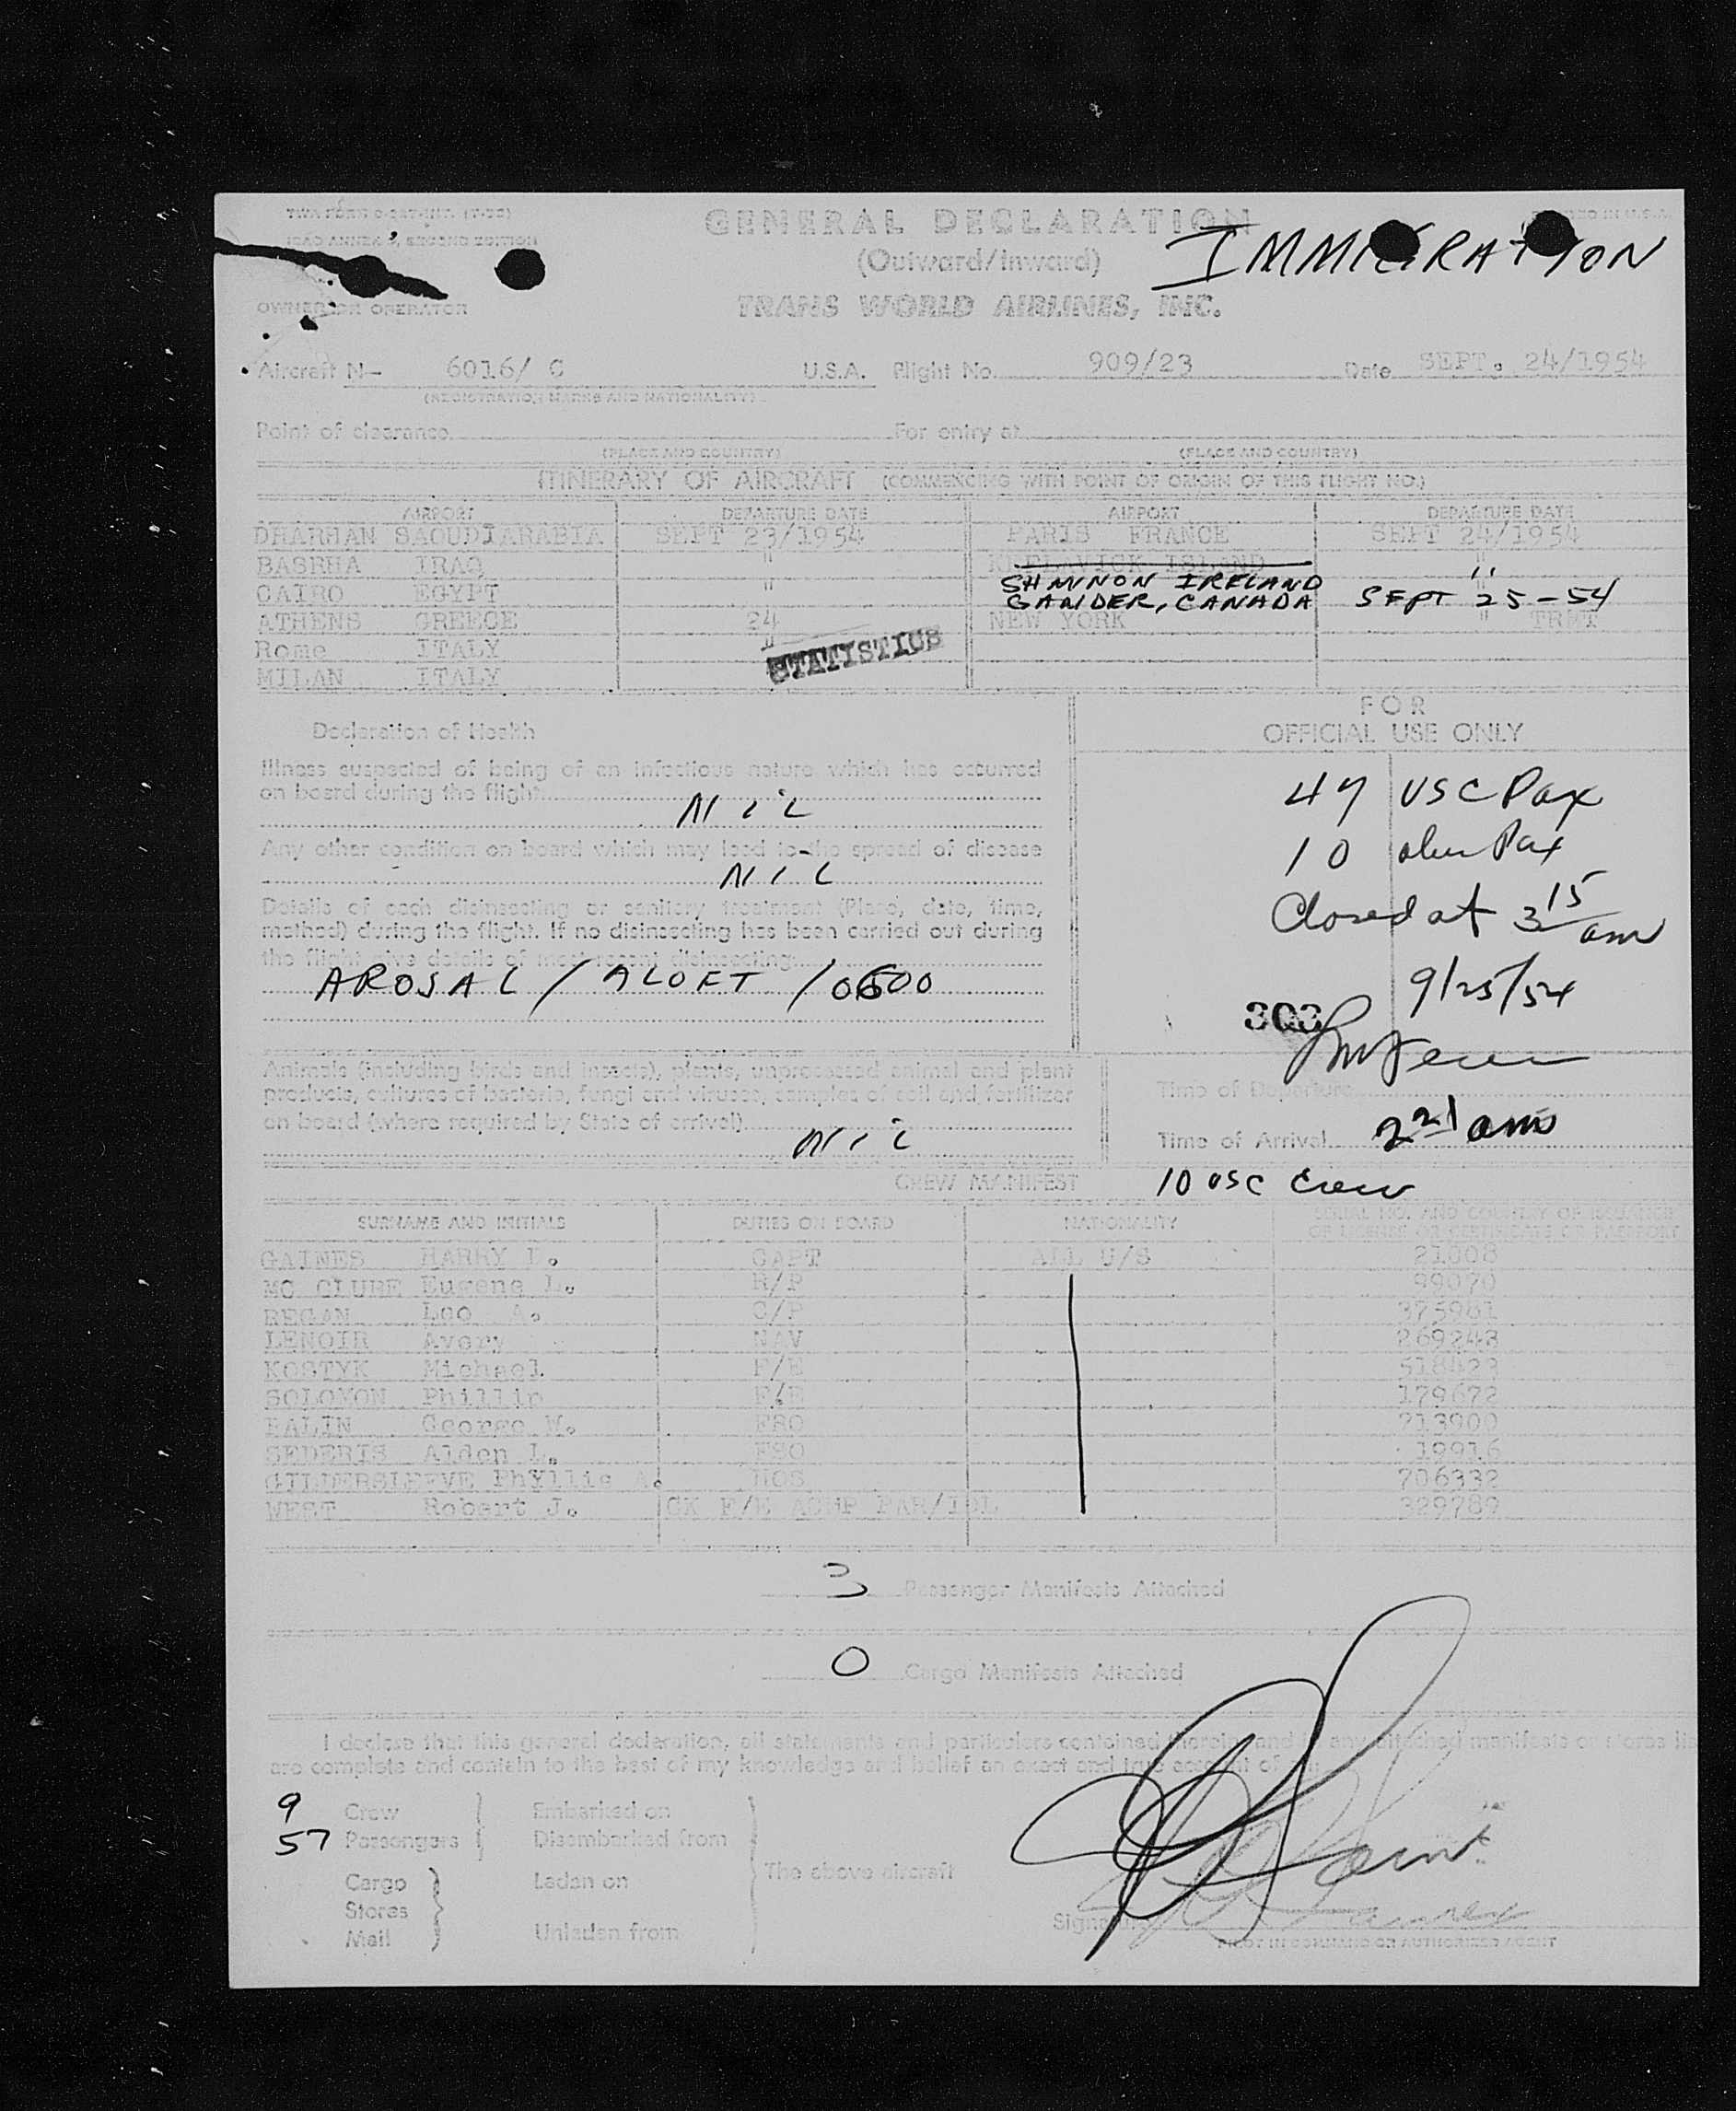 GENERAL DECLARATION
(Outward/Inward)
IMMIGRATION
OWNER OR OPERATOR
TRANS WORLD AIRLINES, INC.
Aircraft N- 6016/ C U.S.A. Flight No. 909/23 Date SEPT. 24/1954
(REGISTRATION MARKS AND NATIONALITY)
Point of clearance For entry at
(PLACE AND COUNTRY) (PLACE AND COUNTRY)
ITINERARY OF AIRCRAFT (COMMENCING WITH POINT OF ORIGIN OF THIS FLIGHT NO.)
AIRPORT DEPARTURE DATE AIRPORT DEPARTURE DATE
DHARHAN SAOUDIARABIA SEPT 23/1954 PARIS FRANCE SEPT 24/1954
BASRHA IRAQ " KEFLAVICK ISLAND "
CAIRO EGYPT " SHANNON IRELAND "
GANDER, CANADA SEPT 25-54
ATHENS GREECE 24 NEW YORK " TRMT
Rome ITALY "
MILAN ITALY
STATISTICS
Declaration of Health
FOR
OFFICIAL USE ONLY
Illness suspected of being of an infectious nature which has occurred
on board during the flight Nil
Any other condition on board which may lead to the spread of disease
Nil
Details of each disinsecting or sanitary treatment (Place, date, time,
method) during the flight. If no disinsecting has been carried out during
the flight give details of most recent disinsecting:
AROSAL / ALOFT / 0600
47 USC Pax
10 alien Pax
Closed at 3 15 am
9/25/54
303
Animals (including birds and insects), plants, unprocessed animal and plant
products, cultures of bacteria, fungi and viruses, samples of soil and fertilizer
on board (where required by State of arrival)
Nil
Time of Departure
Time of Arrival 2 21 am
CREW MANIFEST 10 USC Crew
SURNAME AND INITIALS DUTIES ON BOARD NATIONALITY SERIAL NO. AND COUNTRY OF ISSUANCE
OF LICENSE OR CERTIFICATE OR PASSPORT
GAINES HARRY L. CAPT ALL U/S 21808
MC CLURE Eugene L. R/P 99070
REGAN Leo A. C/P 375981
LENOIR Avery N/V 269243
KOSTYK Michael F/E 518423
SOLOMON Phillip F/E 179672
EALIN George W. FRO 213900
SEDERIS Alden L. FSO 19916
GILDERSLEEVE Phyllis A. HOS 706332
WEST Robert J. CK F/E ACMP PAR/IDL 329789
3 Passenger Manifests Attached
0 Cargo Manifests Attached
I declare that this general declaration, all statements and particulars contained therein and any attached manifests or stores
are complete and contain to the best of my knowledge and belief an exact and true account of
9 Crew Embarked on
57 Passengers Disembarked from
The above aircraft
Cargo Laden on
Stores
Mail Unladen from
Signature
PILOT IN COMMAND OR AUTHORIZED AGENT